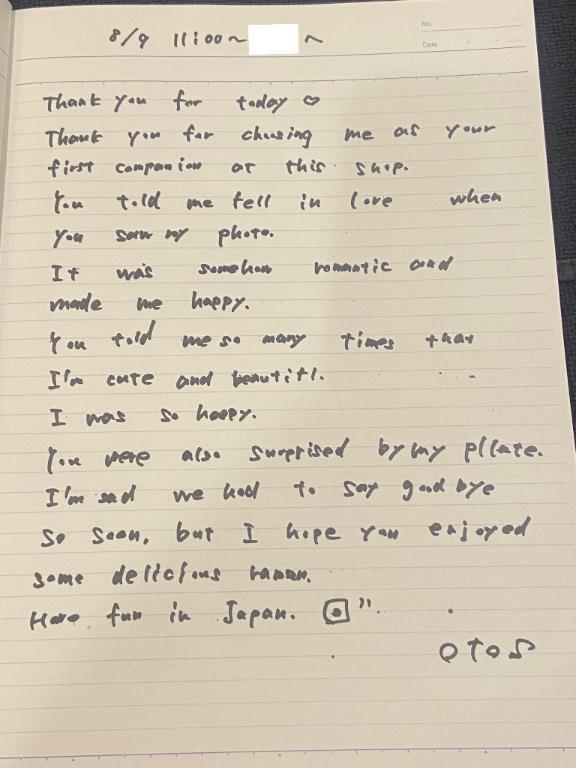 No.
Date
8/9 11:00~ ~
Thank you for today ♡
Thank you for choosing me as your
first companion at this shop.
You told me fell in love when
you saw my photo.
It was somehow romantic and
made me happy.
You told me so many times that
I'm cute and beautifl.
I was so happy.
You were also surprised by my
I'm sad we had to say goodbye
so soon, but I hope you enjoyed
some delicious ramen.
Have fun in Japan.